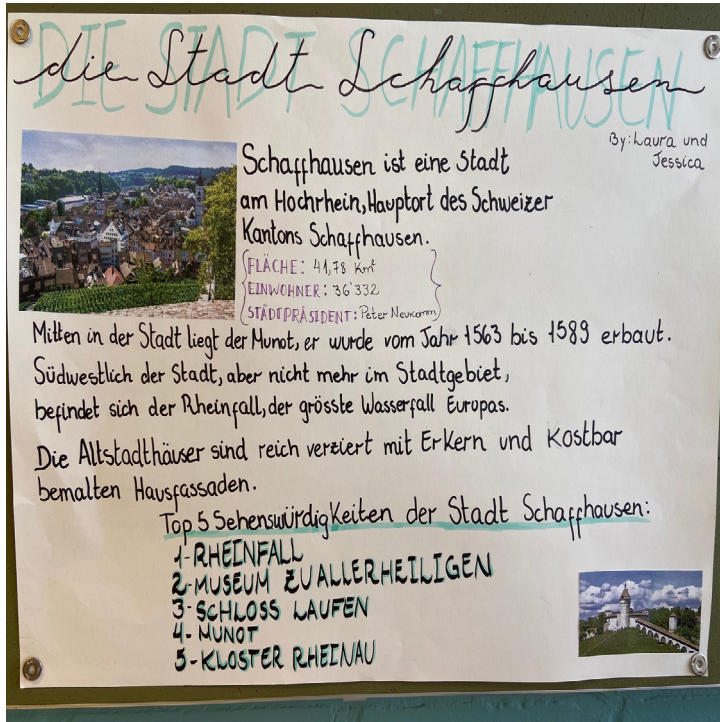 DIE STADT SCHAFFHAUSEN
die Stadt Schaffhausen
By: Laura und
Jessica
Schaffhausen ist eine Stadt
am Hochrhein, Hauptort des Schweizer
Kantons Schaffhausen.
FLÄCHE: 41,78 Km²
EINWOHNER: 36'332
STÄDTPRÄSIDENT: Peter Neukomm
Mitten in der Stadt liegt der Munot, er wurde vom Jahr 1563 bis 1589 erbaut.
Südwestlich der Stadt, aber nicht mehr im Stadtgebiet,
befindet sich der Rheinfall, der grösste Wasserfall Europas.
Die Altstadthäuser sind reich verziert mit Erkern und Kostbar
bemalten Hausfassaden.
Top 5 Sehenswürdigkeiten der Stadt Schaffhausen:
1-RHEINFALL
2-MUSEUM ZU ALLERHEILIGEN
3-SCHLOSS LAUFEN
4-MUNOT
5-KLOSTER RHEINAU